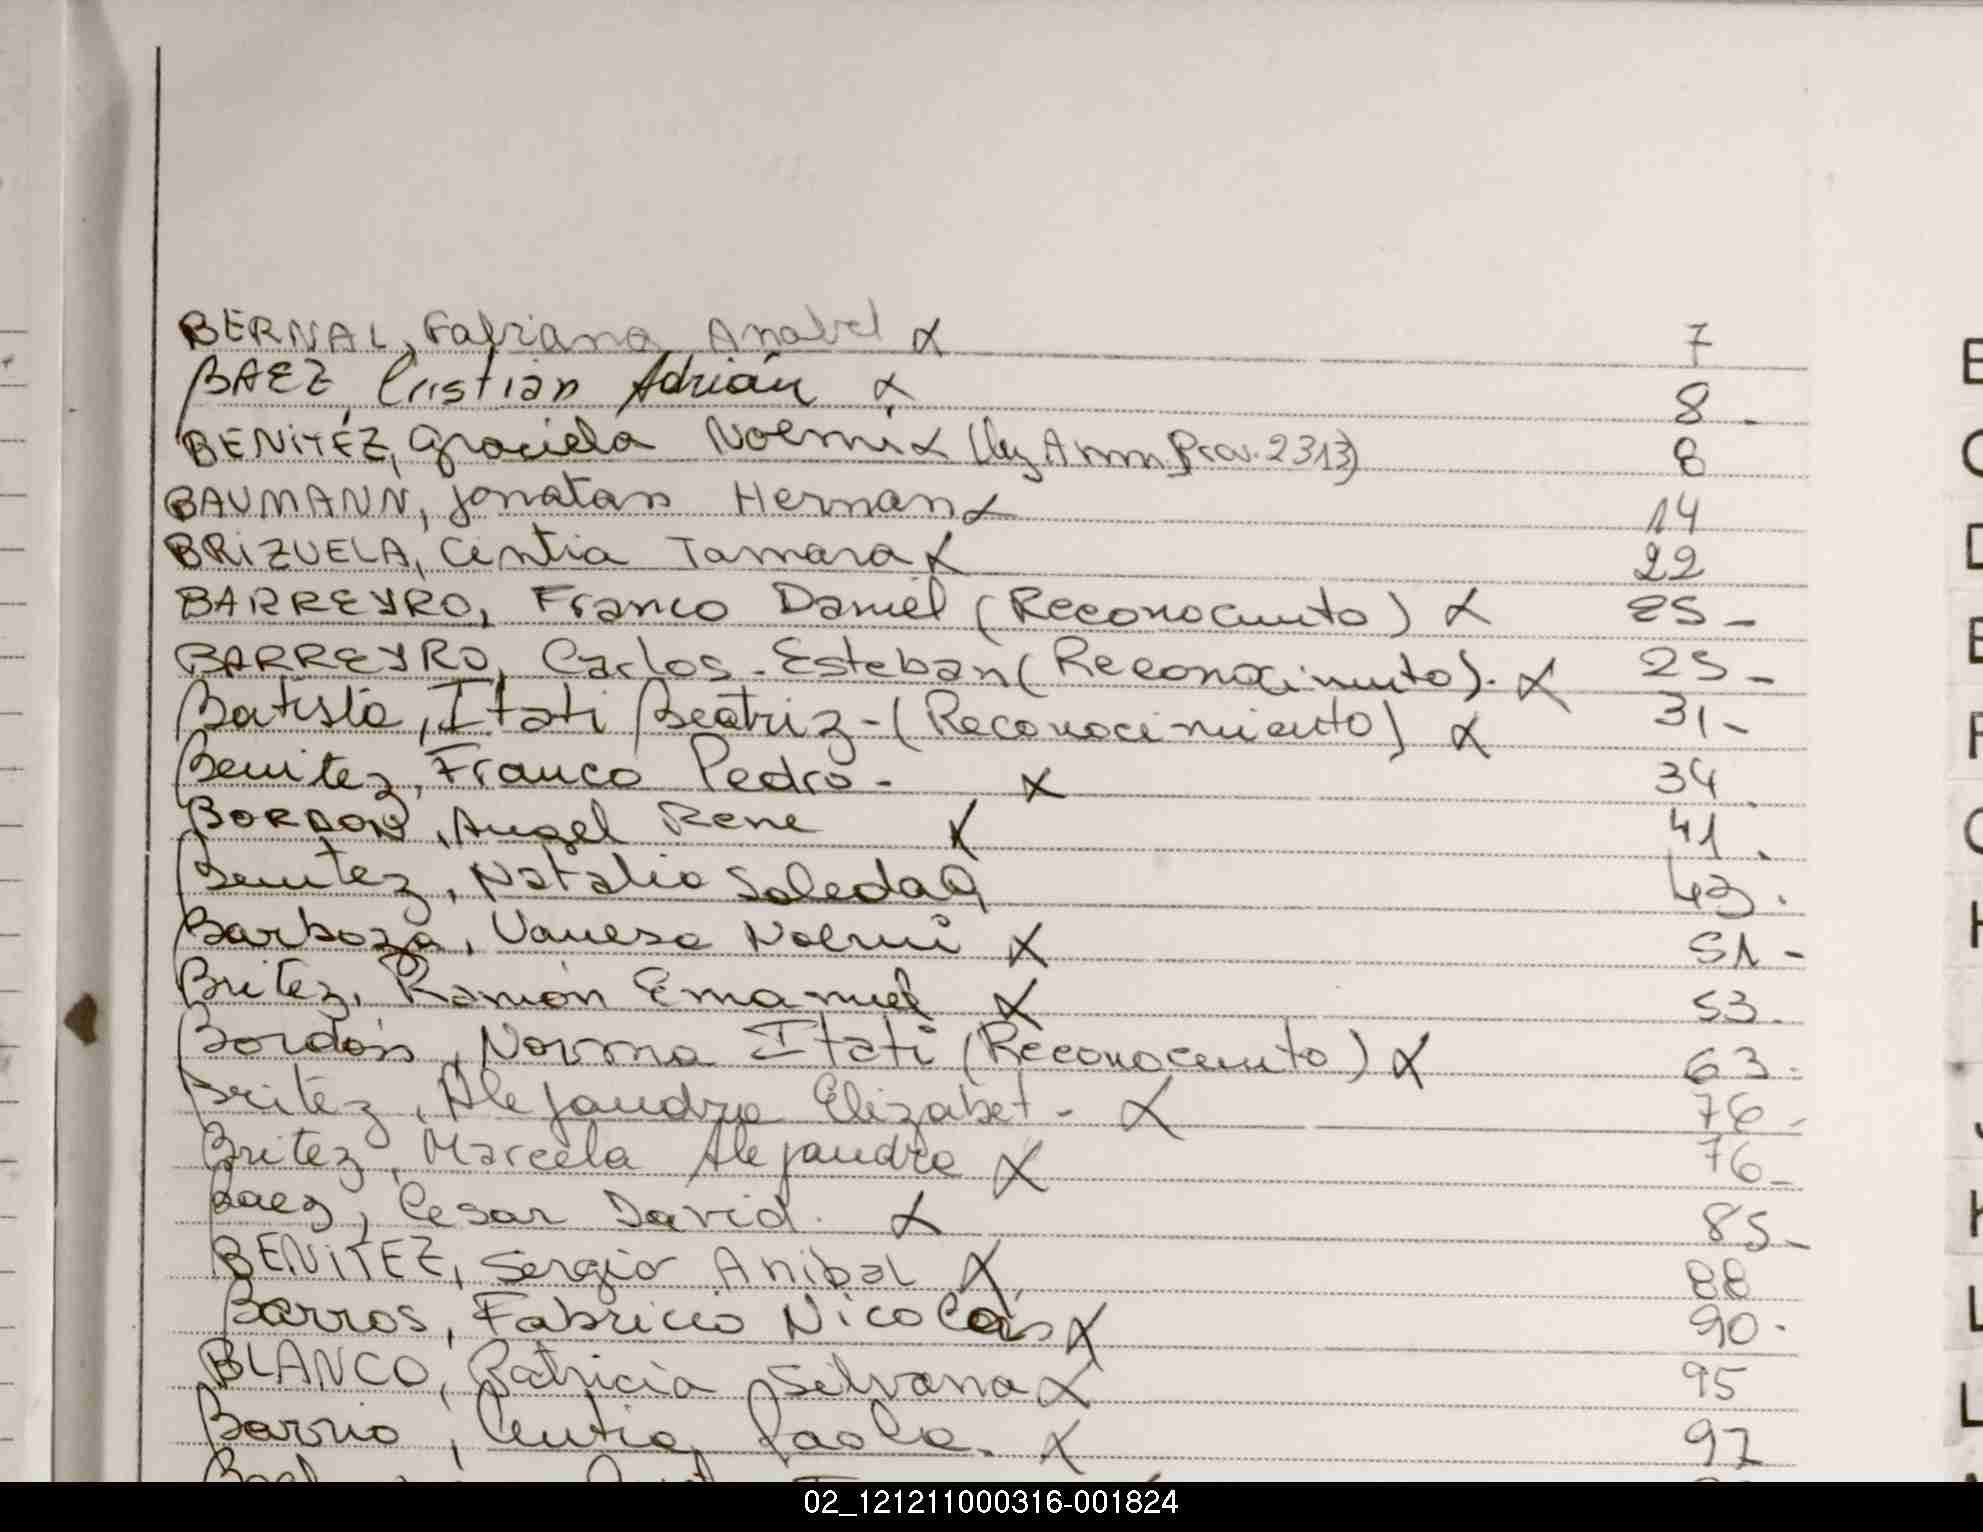 BERNAL, Fabiana Anabel x 7
BAEZ, Cristian Adrián x 8-
BENITEZ, Graciela Noemi x (Ley Amm. Prov. 2313) 8
BAUMANN, Jonatan Hernan x 14
BRIZUELA, Cintia Tamara x 22
BARREYRO, Franco Daniel (Reconocimto) x 25-
BARREYRO, Carlos Esteban (Reconocimiento). x 25-
Batista, Itati Beatriz-(Reconocimiento) x 31-
Benitez, Franco Pedro- x 34.
BORDON, Angel Rene x 41.
Benitez, Natalia Soledad 43.
Barboza, Vanesa Noemi x 51-
Britez, Ramón Emanuel x 53.
Bordón, Norma Itati (Reconocimto) x 63.
Britez, Alejandra Elizabet- x 76-
Britez, Marcela Alejandra x 76-
Baez, Cesar David. x 85-
BENITEZ, Sergio Anibal x 88
Barros, Fabricio Nicolás x 90.
BLANCO, Patricia Silvana x 95
Barrio, Cintia Paola. x 97
E
C
D
E
F
G
H
J
K
L
L
02_121211000316-001824